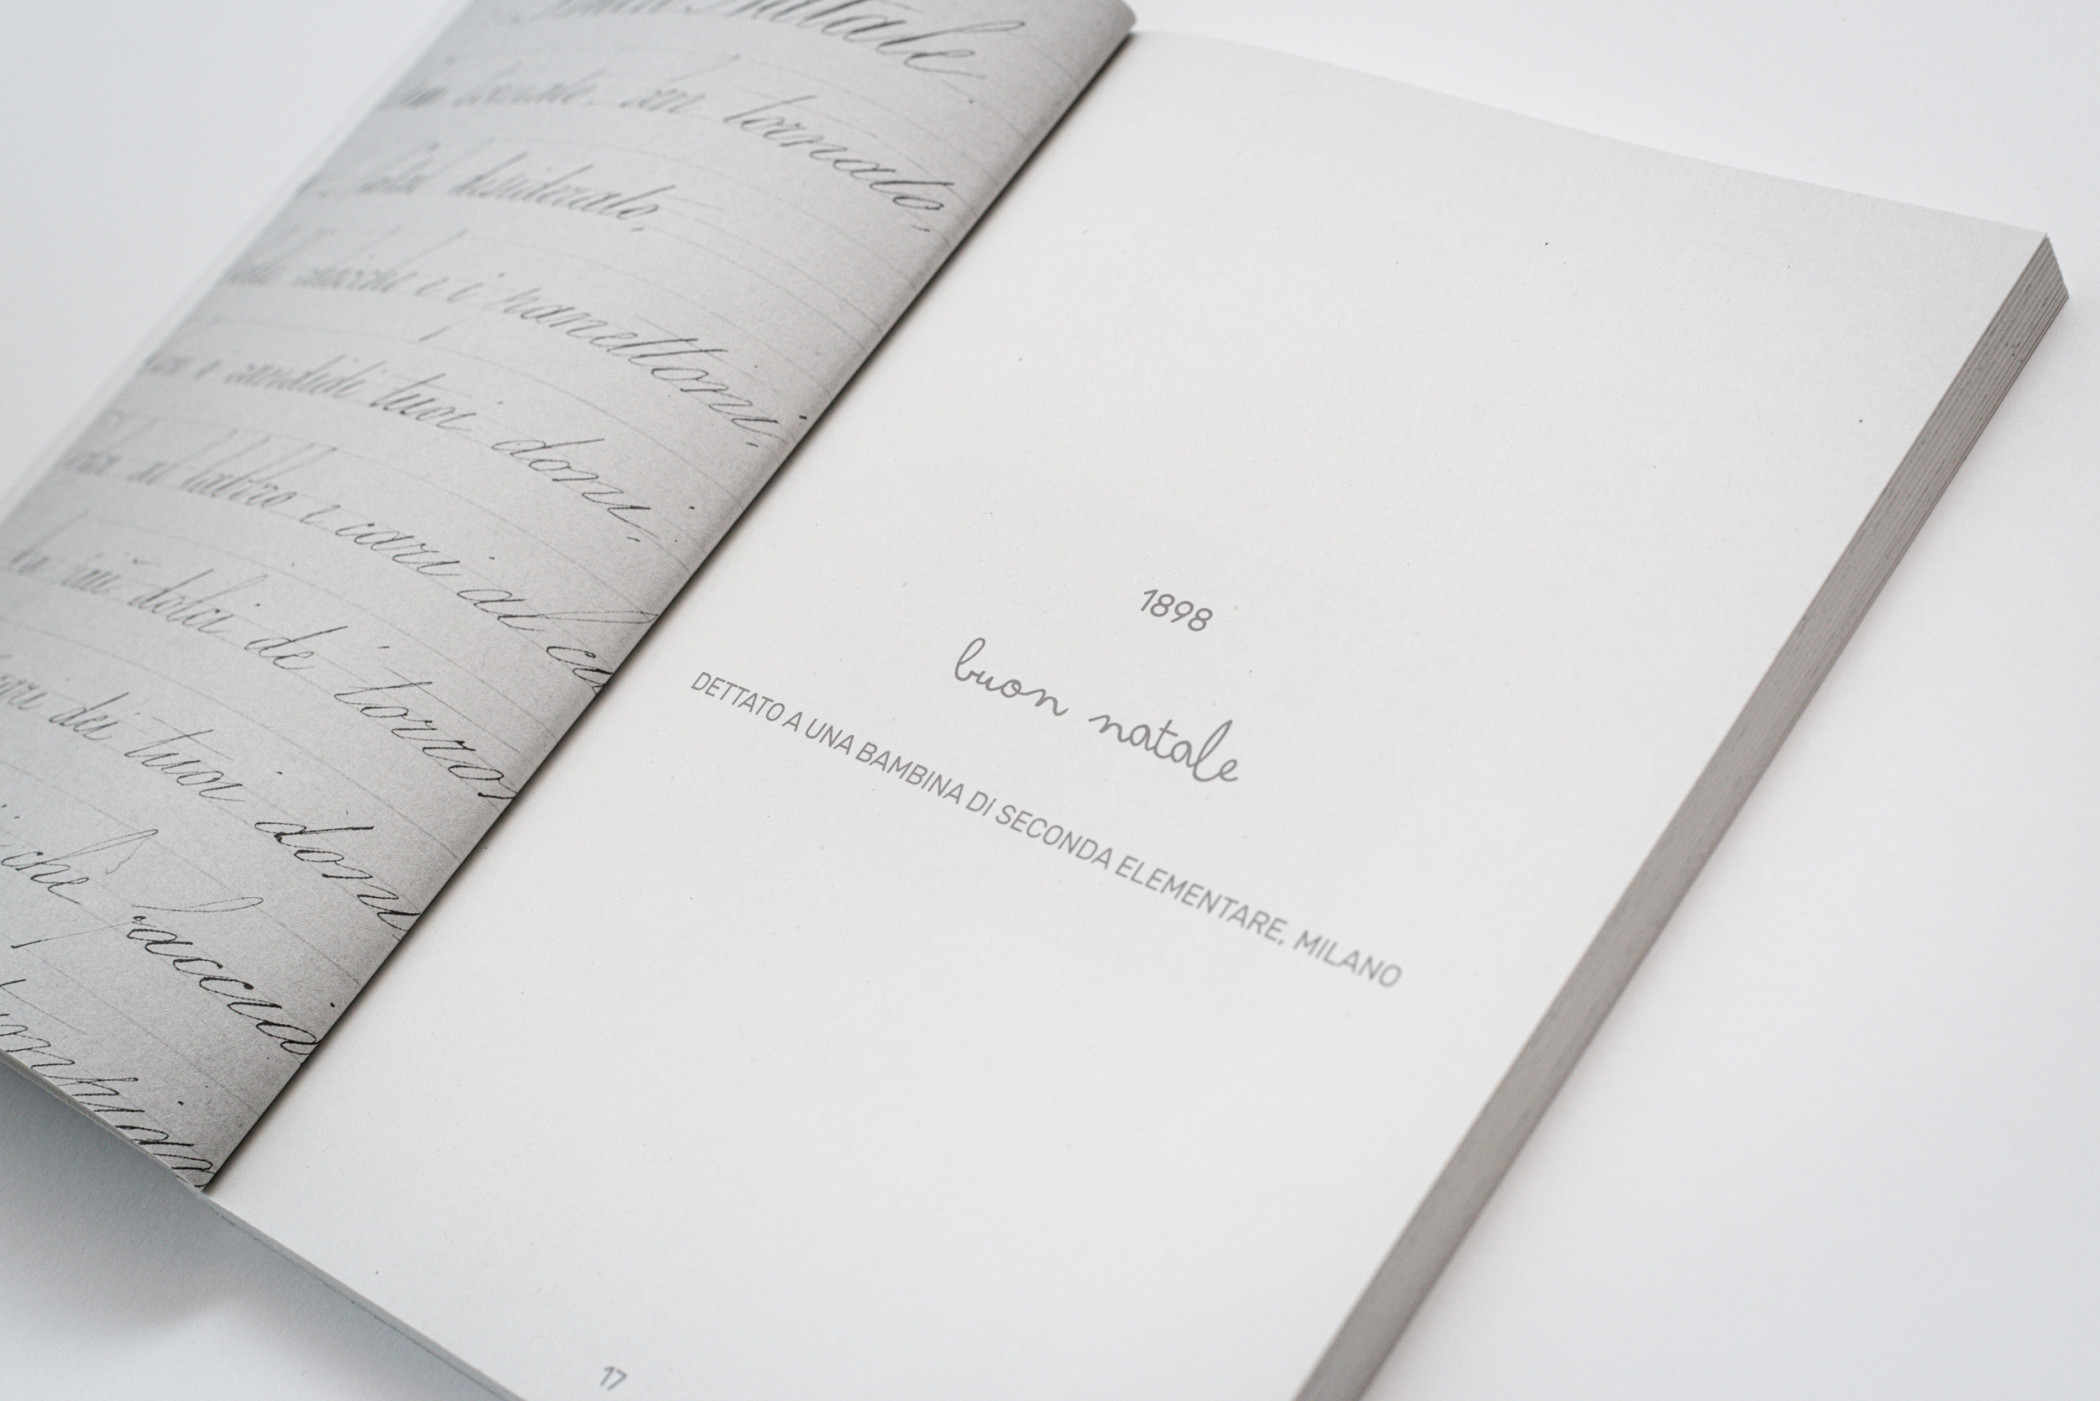 Natale
tornato,
desiderato.
e i panettoni.
e candidi tuoi doni.
al labbro e cari al
dolci de' torro
dei tuoi doni
che faccia
1898
buon natale
DETTATO A UNA BAMBINA DI SECONDA ELEMENTARE, MILANO
17